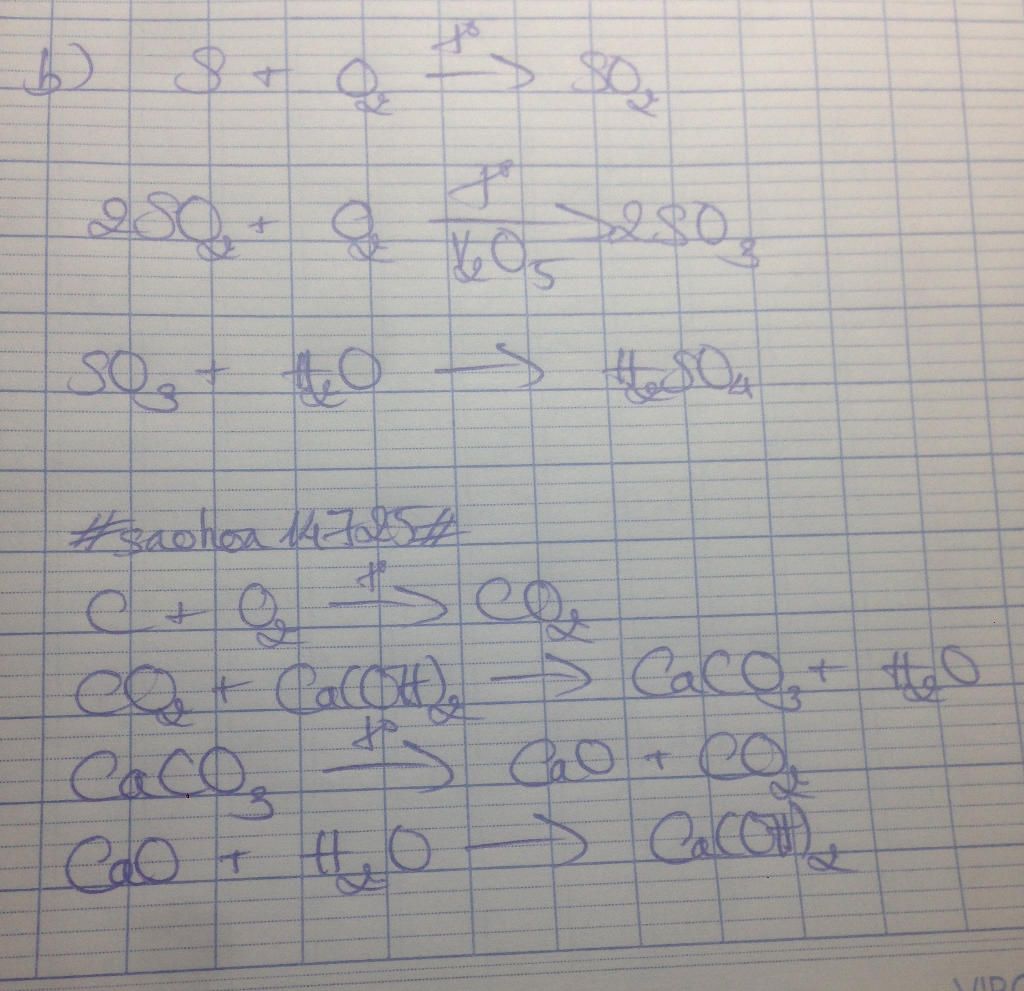 b) S + O₂ —t°→ SO₂
2SO₂ + O₂ —t°/V₂O₅→ 2SO₃
SO₃ + H₂O → H₂SO₄
#saohoa14725#
C + O₂ —t°→ CO₂
CO₂ + Ca(OH)₂ → CaCO₃ + H₂O
CaCO₃ —t°→ CaO + CO₂
CaO + H₂O → Ca(OH)₂